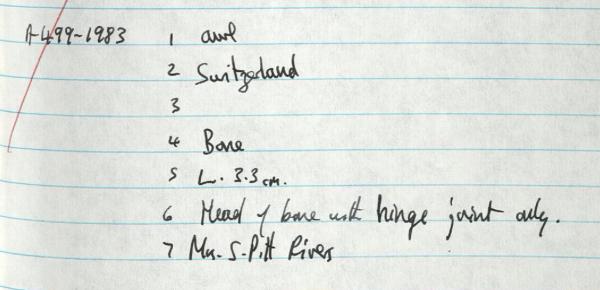 A-499-1983 1 awl
2 Switzerland
3
4 Bone
5 L. 3.3 cm.
6 Head of bone with hinge joint only.
7 Mrs. S. Pitt Rivers